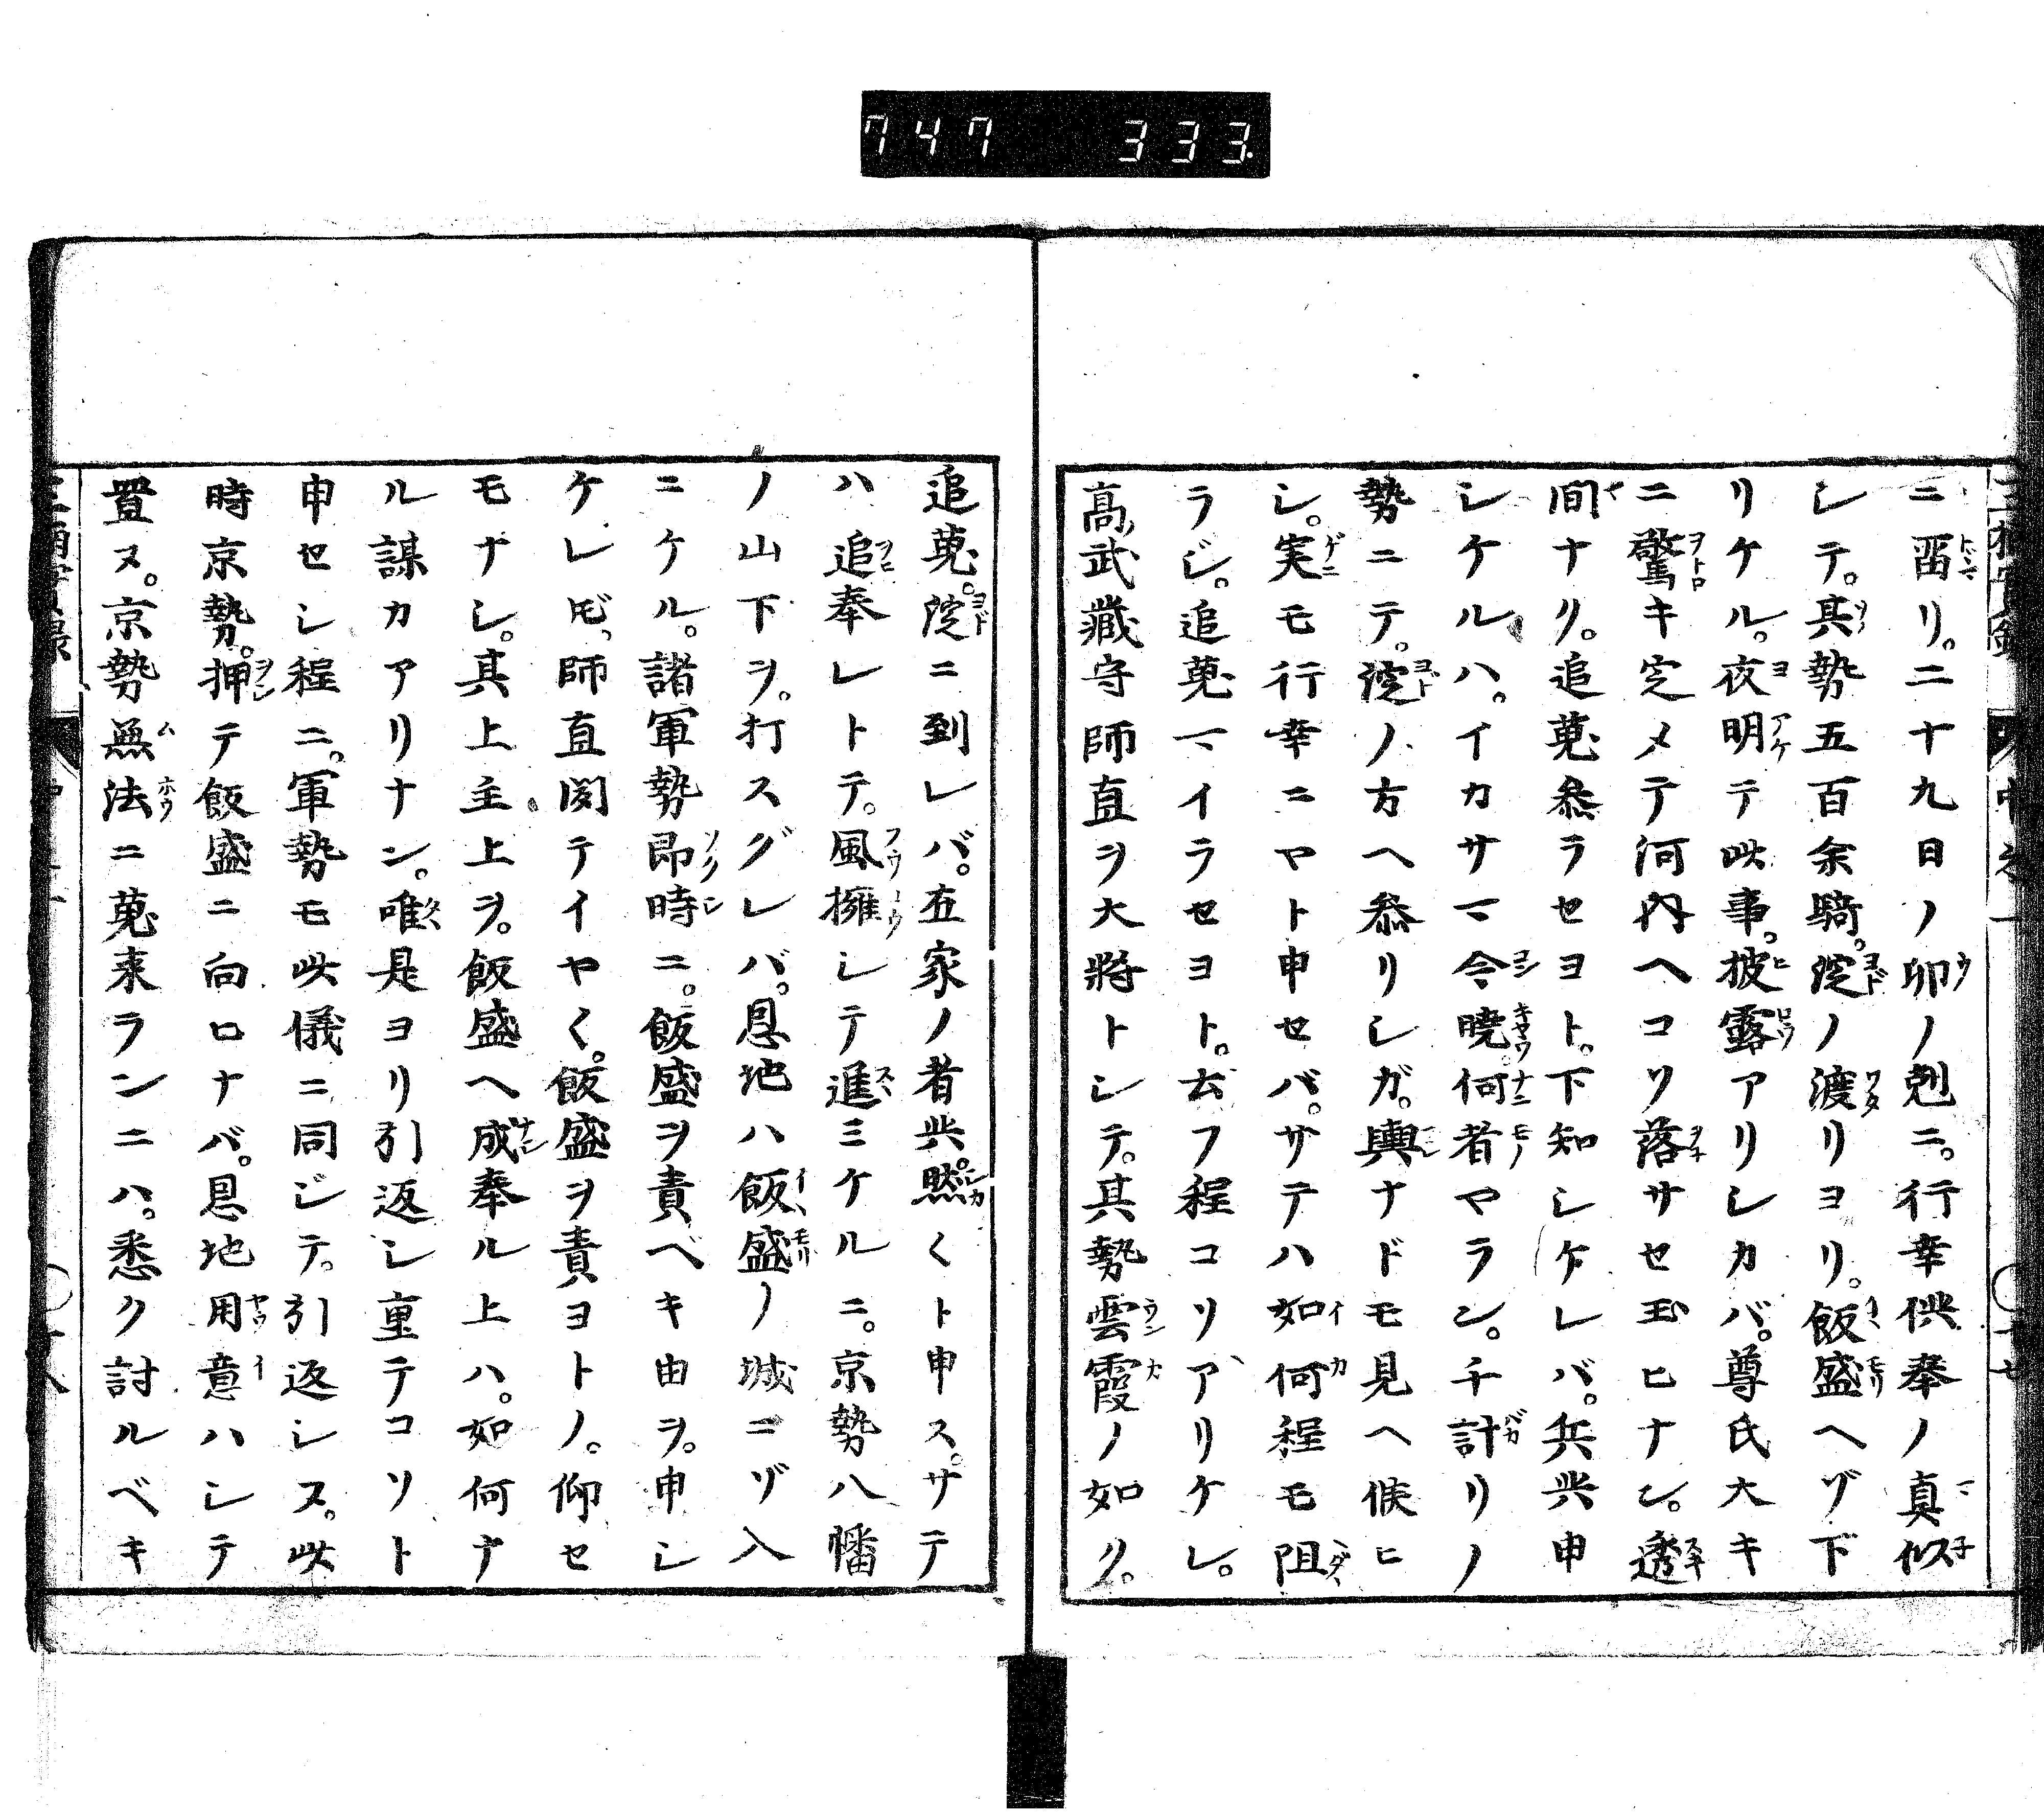 747 333
ニ畱リ。二十九日ノ卯ノ剋ニ。行幸供奉ノ真似
シテ。其勢五百余騎。淀ノ渡リヨリ。飯盛ヘゾ下
リケル。夜明テ此事。披露アリシカバ。尊氏大キ
ニ驚キ定メテ河内ヘコソ落サセ玉ヒナン。透
間ナク。追蒐参ラセヨト。下知シケレバ。兵共申
シケルハ。イカサマ今曉。何者ヤラン。千計リノ
勢ニテ。淀ノ方ヘ参リシガ。輿ナドモ見ヘ候ヒ
シ。実モ行幸ニヤト申セバ。サテハ如何程モ阻
ラジ。追蒐マイラセヨト。云フ程コソアリケレ。
高武藏守師直ヲ大將トシテ。其勢雲霞ノ如ク。
追蒐。淀ニ到レバ。在家ノ者共。然〱ト申ス。サテ
ハ追奉レトテ。風擁シテ進ミケルニ。京勢八幡
ノ山下ヲ。打スグレバ。恩地ハ飯盛ノ城ニゾ入
ニケル。諸軍勢即時ニ。飯盛ヲ責ベキ由ヲ。申シ
ケレ𪜈、師直聞テイヤ〱。飯盛ヲ責ヨトノ。仰セ
モナシ。其上主上ヲ。飯盛ヘ成奉ル上ハ。如何ナ
ル謀カアリナン。唯是ヨリ引返シ重テコソト
申セシ程ニ。軍勢モ此儀ニ同ジテ。引返シヌ。此
時京勢。押テ飯盛ニ向ロナバ。恩地用意ハシテ
置ヌ。京勢無法ニ蒐来ランニハ。悉ク討ルベキ